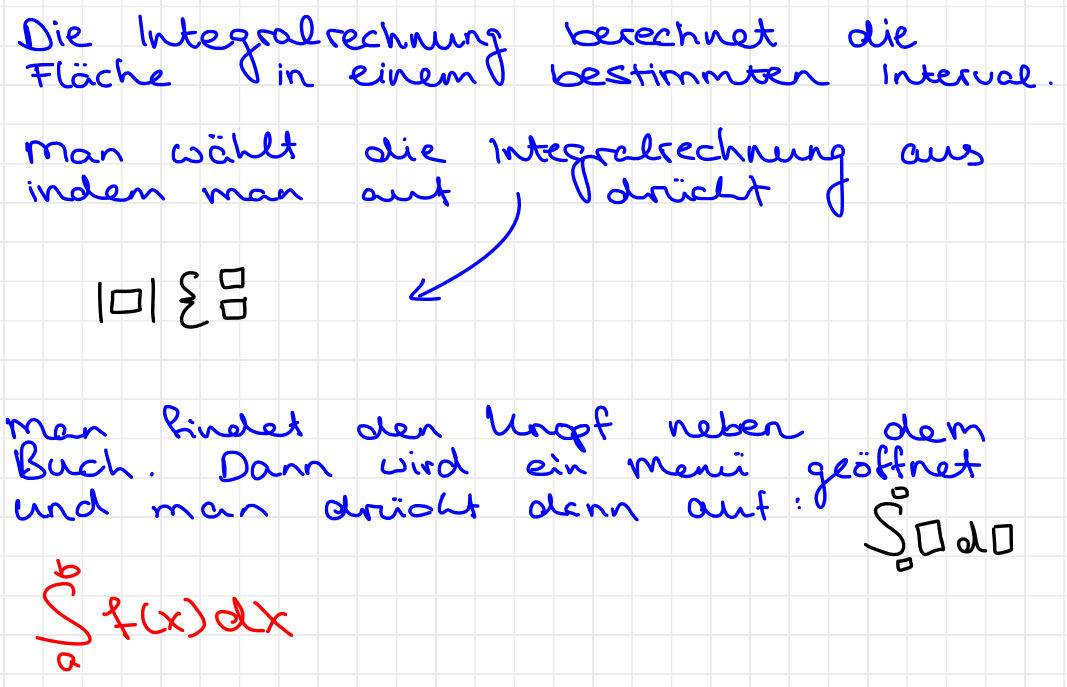 Die Integralrechnung berechnet die
Fläche in einem bestimmten Interval.
Man wählt die Integralrechnung aus
indem man auf drückt
|□| { □ □
Man findet den Knopf neben dem
Buch. Dann wird ein Menü geöffnet
und man drückt dann auf:
∫□d□
∫ₐᵇ f(x)dx